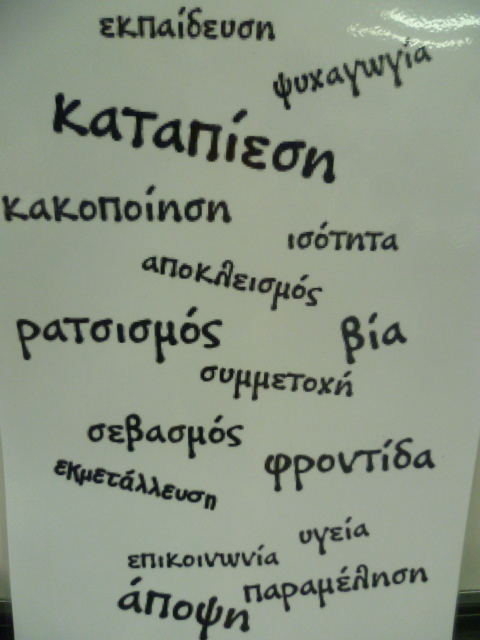 εκπαίδευση
ψυχαγωγία
καταπίεση
κακοποίηση
ισότητα
αποκλεισμός
ρατσισμός
βία
συμμετοχή
σεβασμός
φροντίδα
εκμετάλλευση
υγεία
επικοινωνία
παραμέληση
άποψη